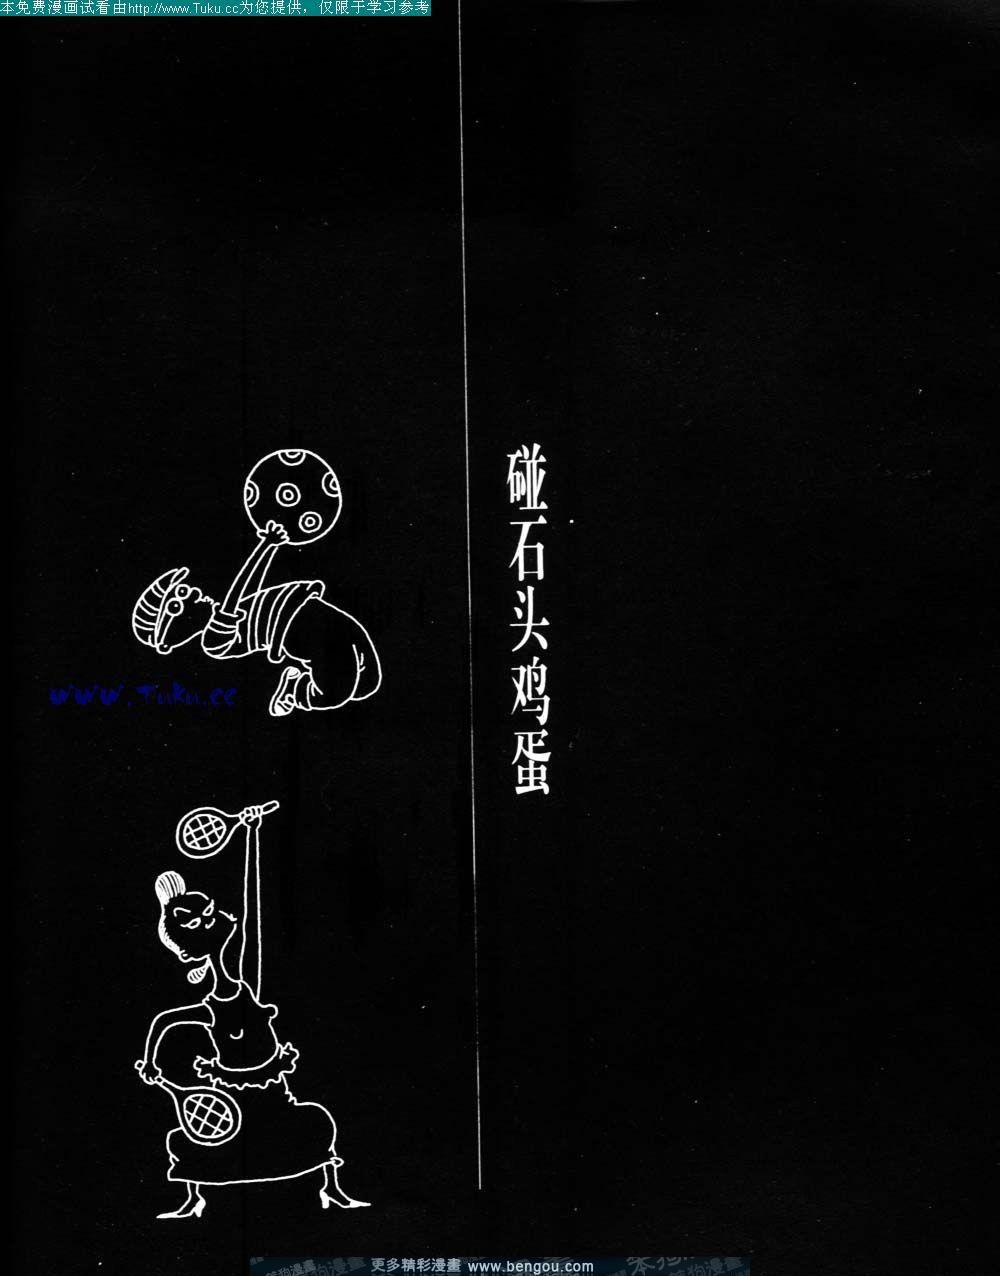 本免费漫画试看由http://www.Tuku.cc为您提供，仅限于学习参考
碰石头鸡蛋
www.Tuku.cc
更多精彩漫畫 www.bengou.com